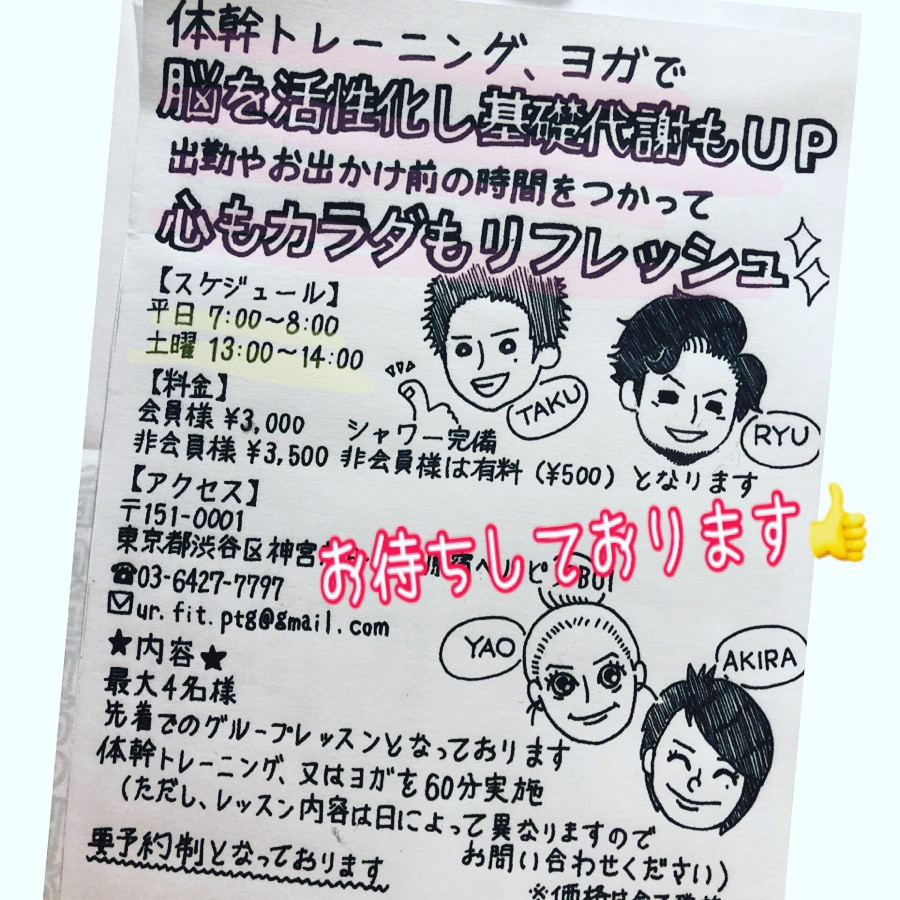 体幹トレーニング、ヨガで
脳を活性化し基礎代謝もUP
出勤やお出かけ前の時間をつかって
心もカラダもリフレッシュ
【スケジュール】
平日 7:00〜8:00
土曜 13:00〜14:00
【料金】
会員様 ¥3,000 シャワー完備
非会員様 ¥3,500 非会員様は有料(¥500)となります
TAKU
RYU
【アクセス】
〒151-0001
東京都渋谷区神宮
お待ちしております👍
☎03-6427-7797
✉ur.fit.ptg@gmail.com
YAO
AKIRA
★内容★
最大4名様
先着でのグループレッスンとなっております
体幹トレーニング、又はヨガを60分実施
(ただし、レッスン内容は日によって異なりますので
お問い合わせください)
要予約制となっております